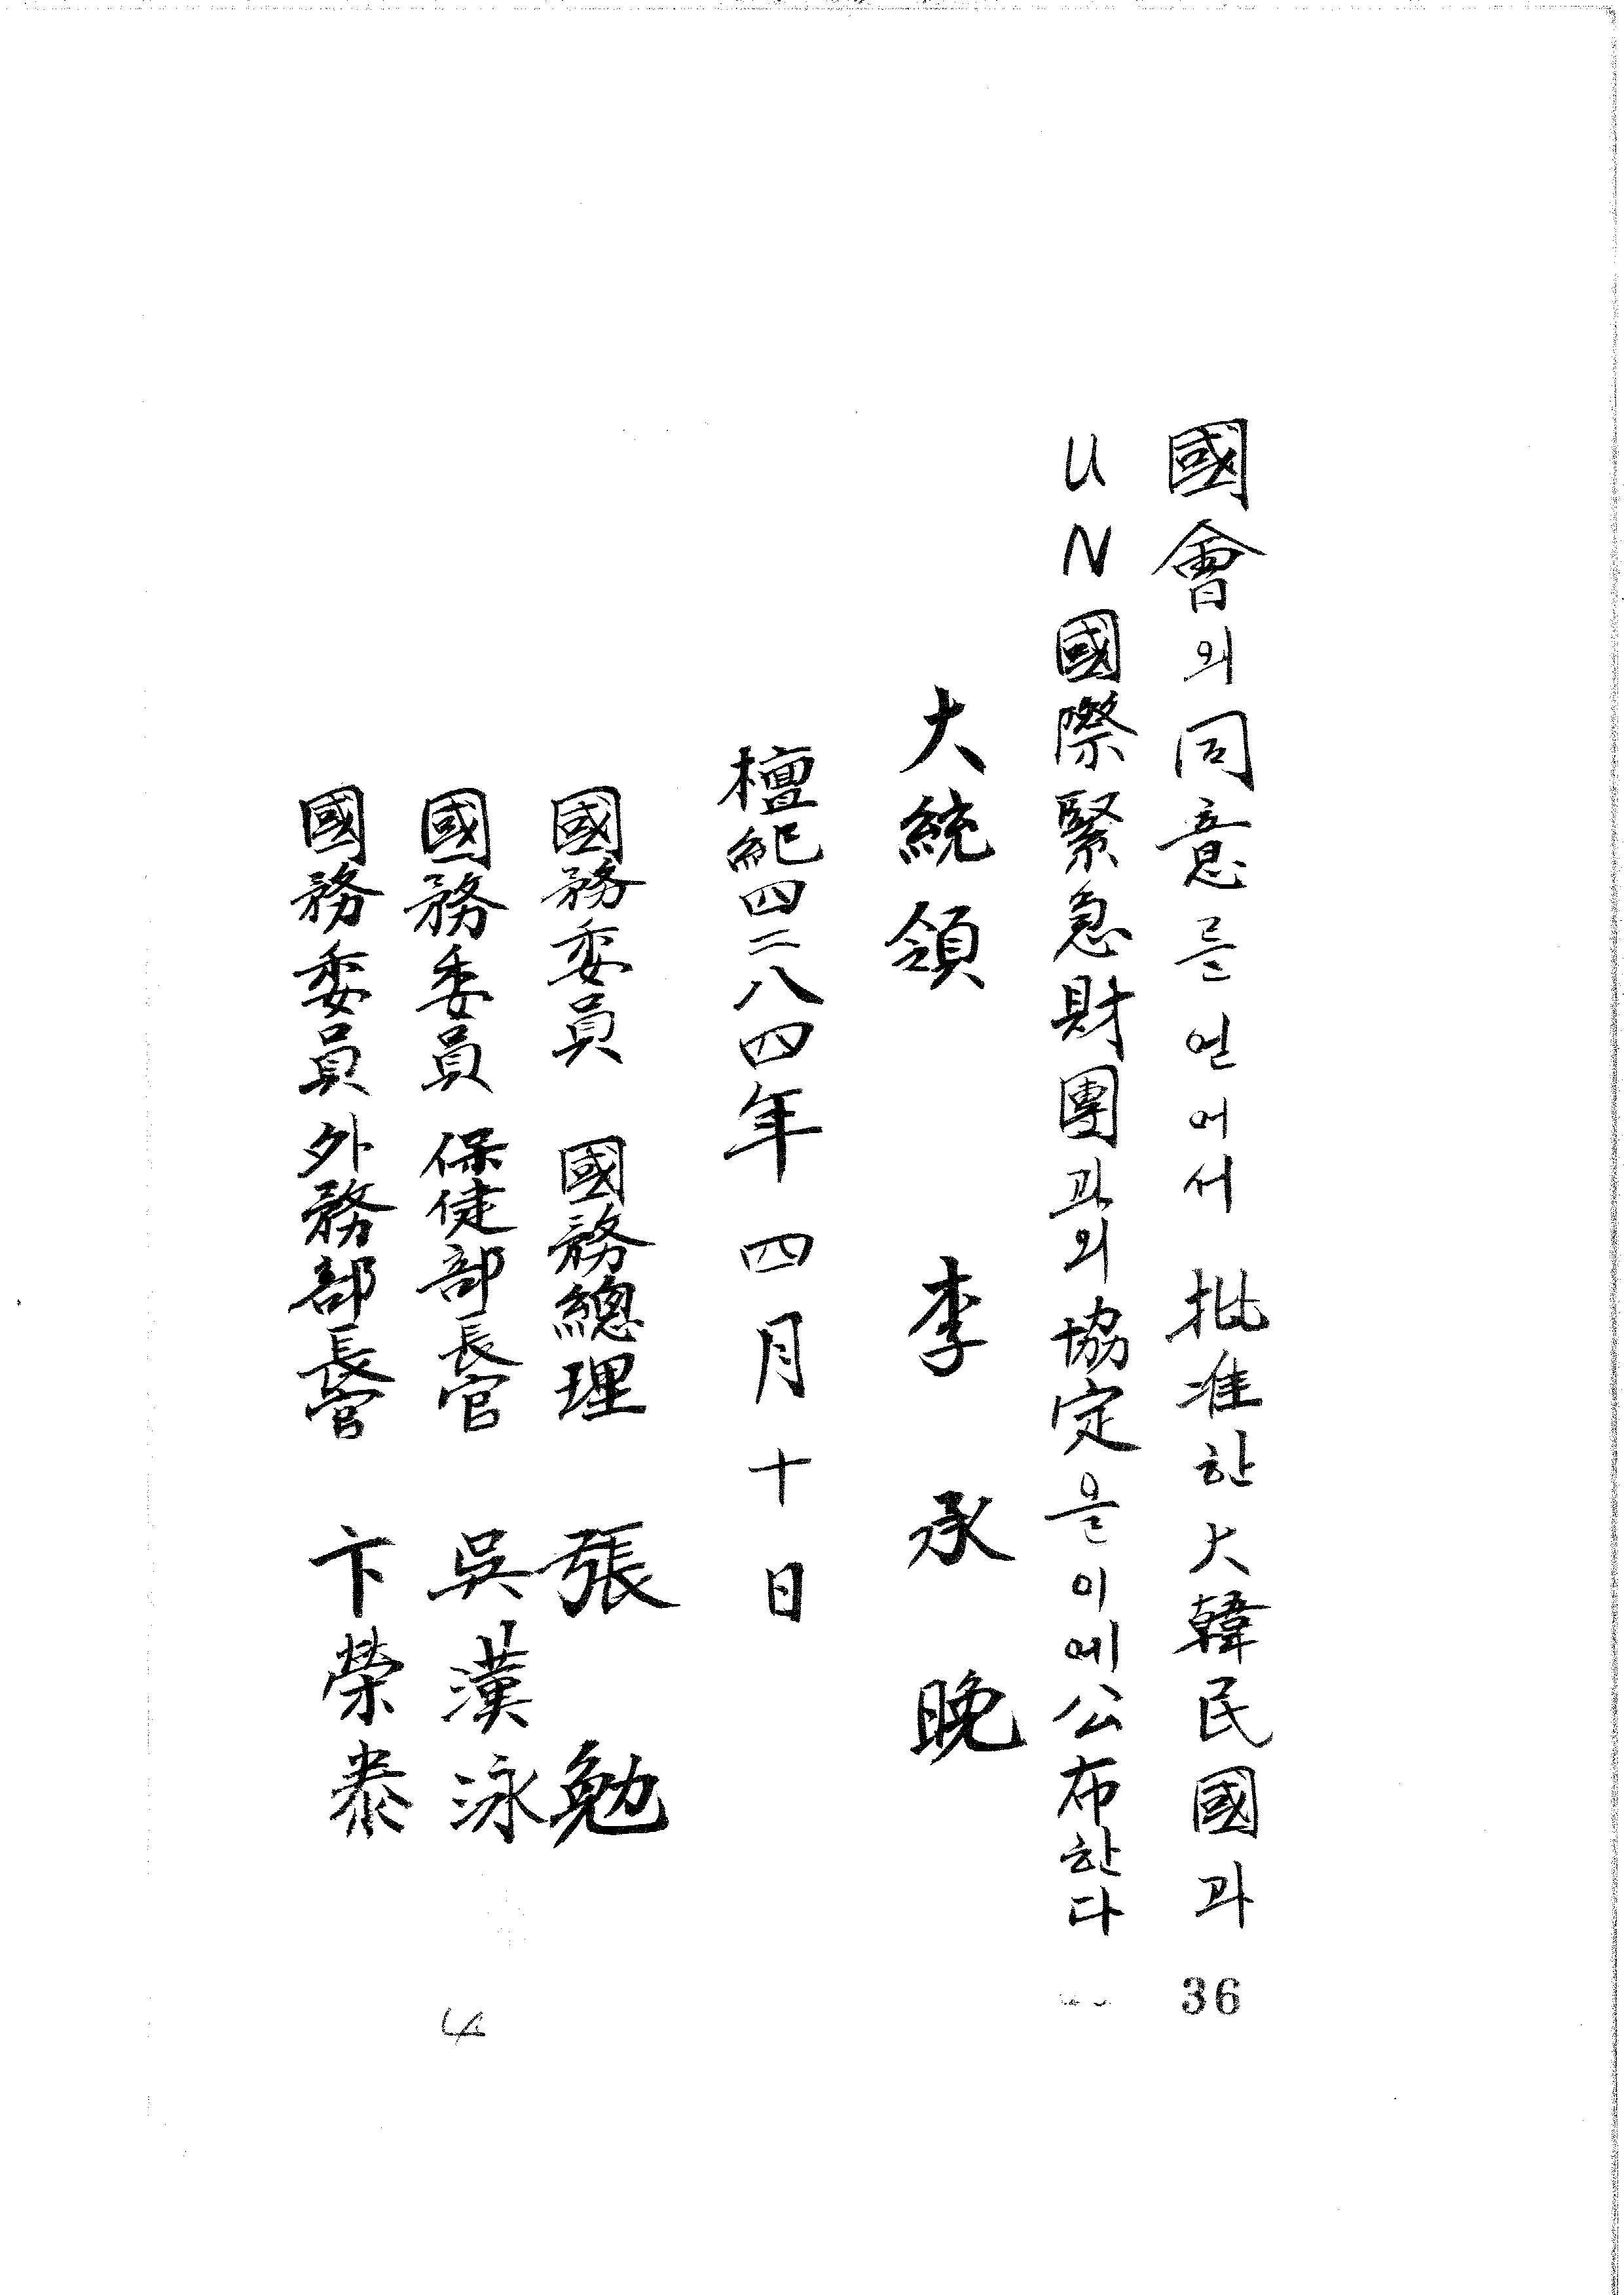 國會의同意를얻어서 批准한大韓民國과
UN國際緊急財團과의協定을이에公布한다
大統領 李承晩
檀紀四二八四年四月十日
國務委員 國務總理 張勉
國務委員 保健部長官 吳漢泳
國務委員 外務部長官 卞榮泰
36